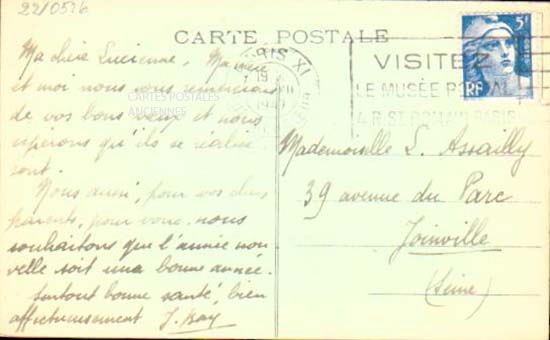 22/0526
CARTE POSTALE
PARIS XI
19
VISITEZ
LE MUSÉE POSTAL
4. R. ST ROMAIN PARIS
5F
RF
CARTES POSTALES
ANCIENNES
Ma chère Lucienne, Maman
et moi nous vous remercions
de vos bons vœux et nous
espérons qu'ils se réalise
ront.
Nous aussi, pour vos chers
parents, pour vous nous
souhaitons que l'année nou
velle soit une bonne année.
Surtout bonne santé, bien
affectueusement
Mademoiselle L. Assailly
39 avenue du Parc
Joinville
(Seine)